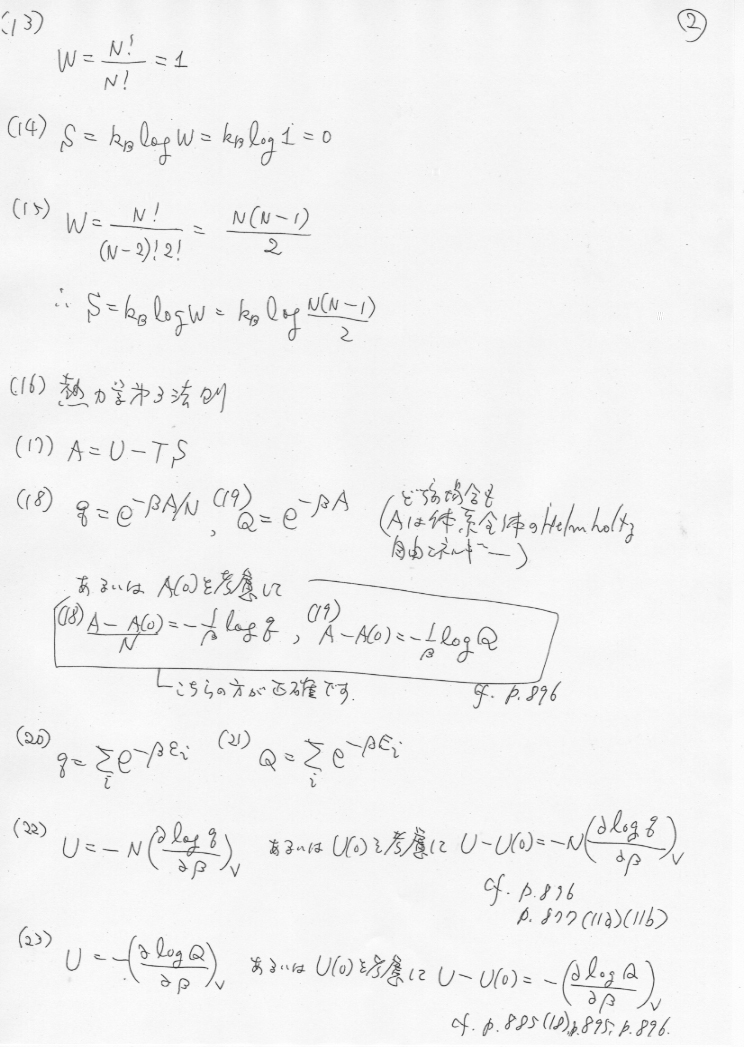 ②
(13) W = N!/N! = 1
(14) S = k_B log W = k_B log 1 = 0
(15) W = N!/((N-2)! 2!) = N(N-1)/2
∴ S = k_B log W = k_B log N(N-1)/2
(16) 熱力学第3法則
(17) A = U - TS
(18) q = e^{-βA/N}, (19) Q = e^{-βA} (どちらの場合も
Aは体系全体のHelmholtz
自由エネルギー)
あるいは A(0)を考慮して
(18) (A - A(0))/N = -1/β log q, (19) A - A(0) = -1/β log Q
こちらの方が正確です. cf. p.896
(20) q = Σ_i e^{-βε_i} (21) Q = Σ_i e^{-βE_i}
(22) U = -N(∂log q/∂β)_V あるいは U(0)を考慮して U - U(0) = -N(∂log q/∂β)_V
cf. p.896
p.877 (11a)(11b)
(23) U = -(∂log Q/∂β)_V あるいは U(0)を考慮して U - U(0) = -(∂log Q/∂β)_V
cf. p.885(18), p.895, p.896.